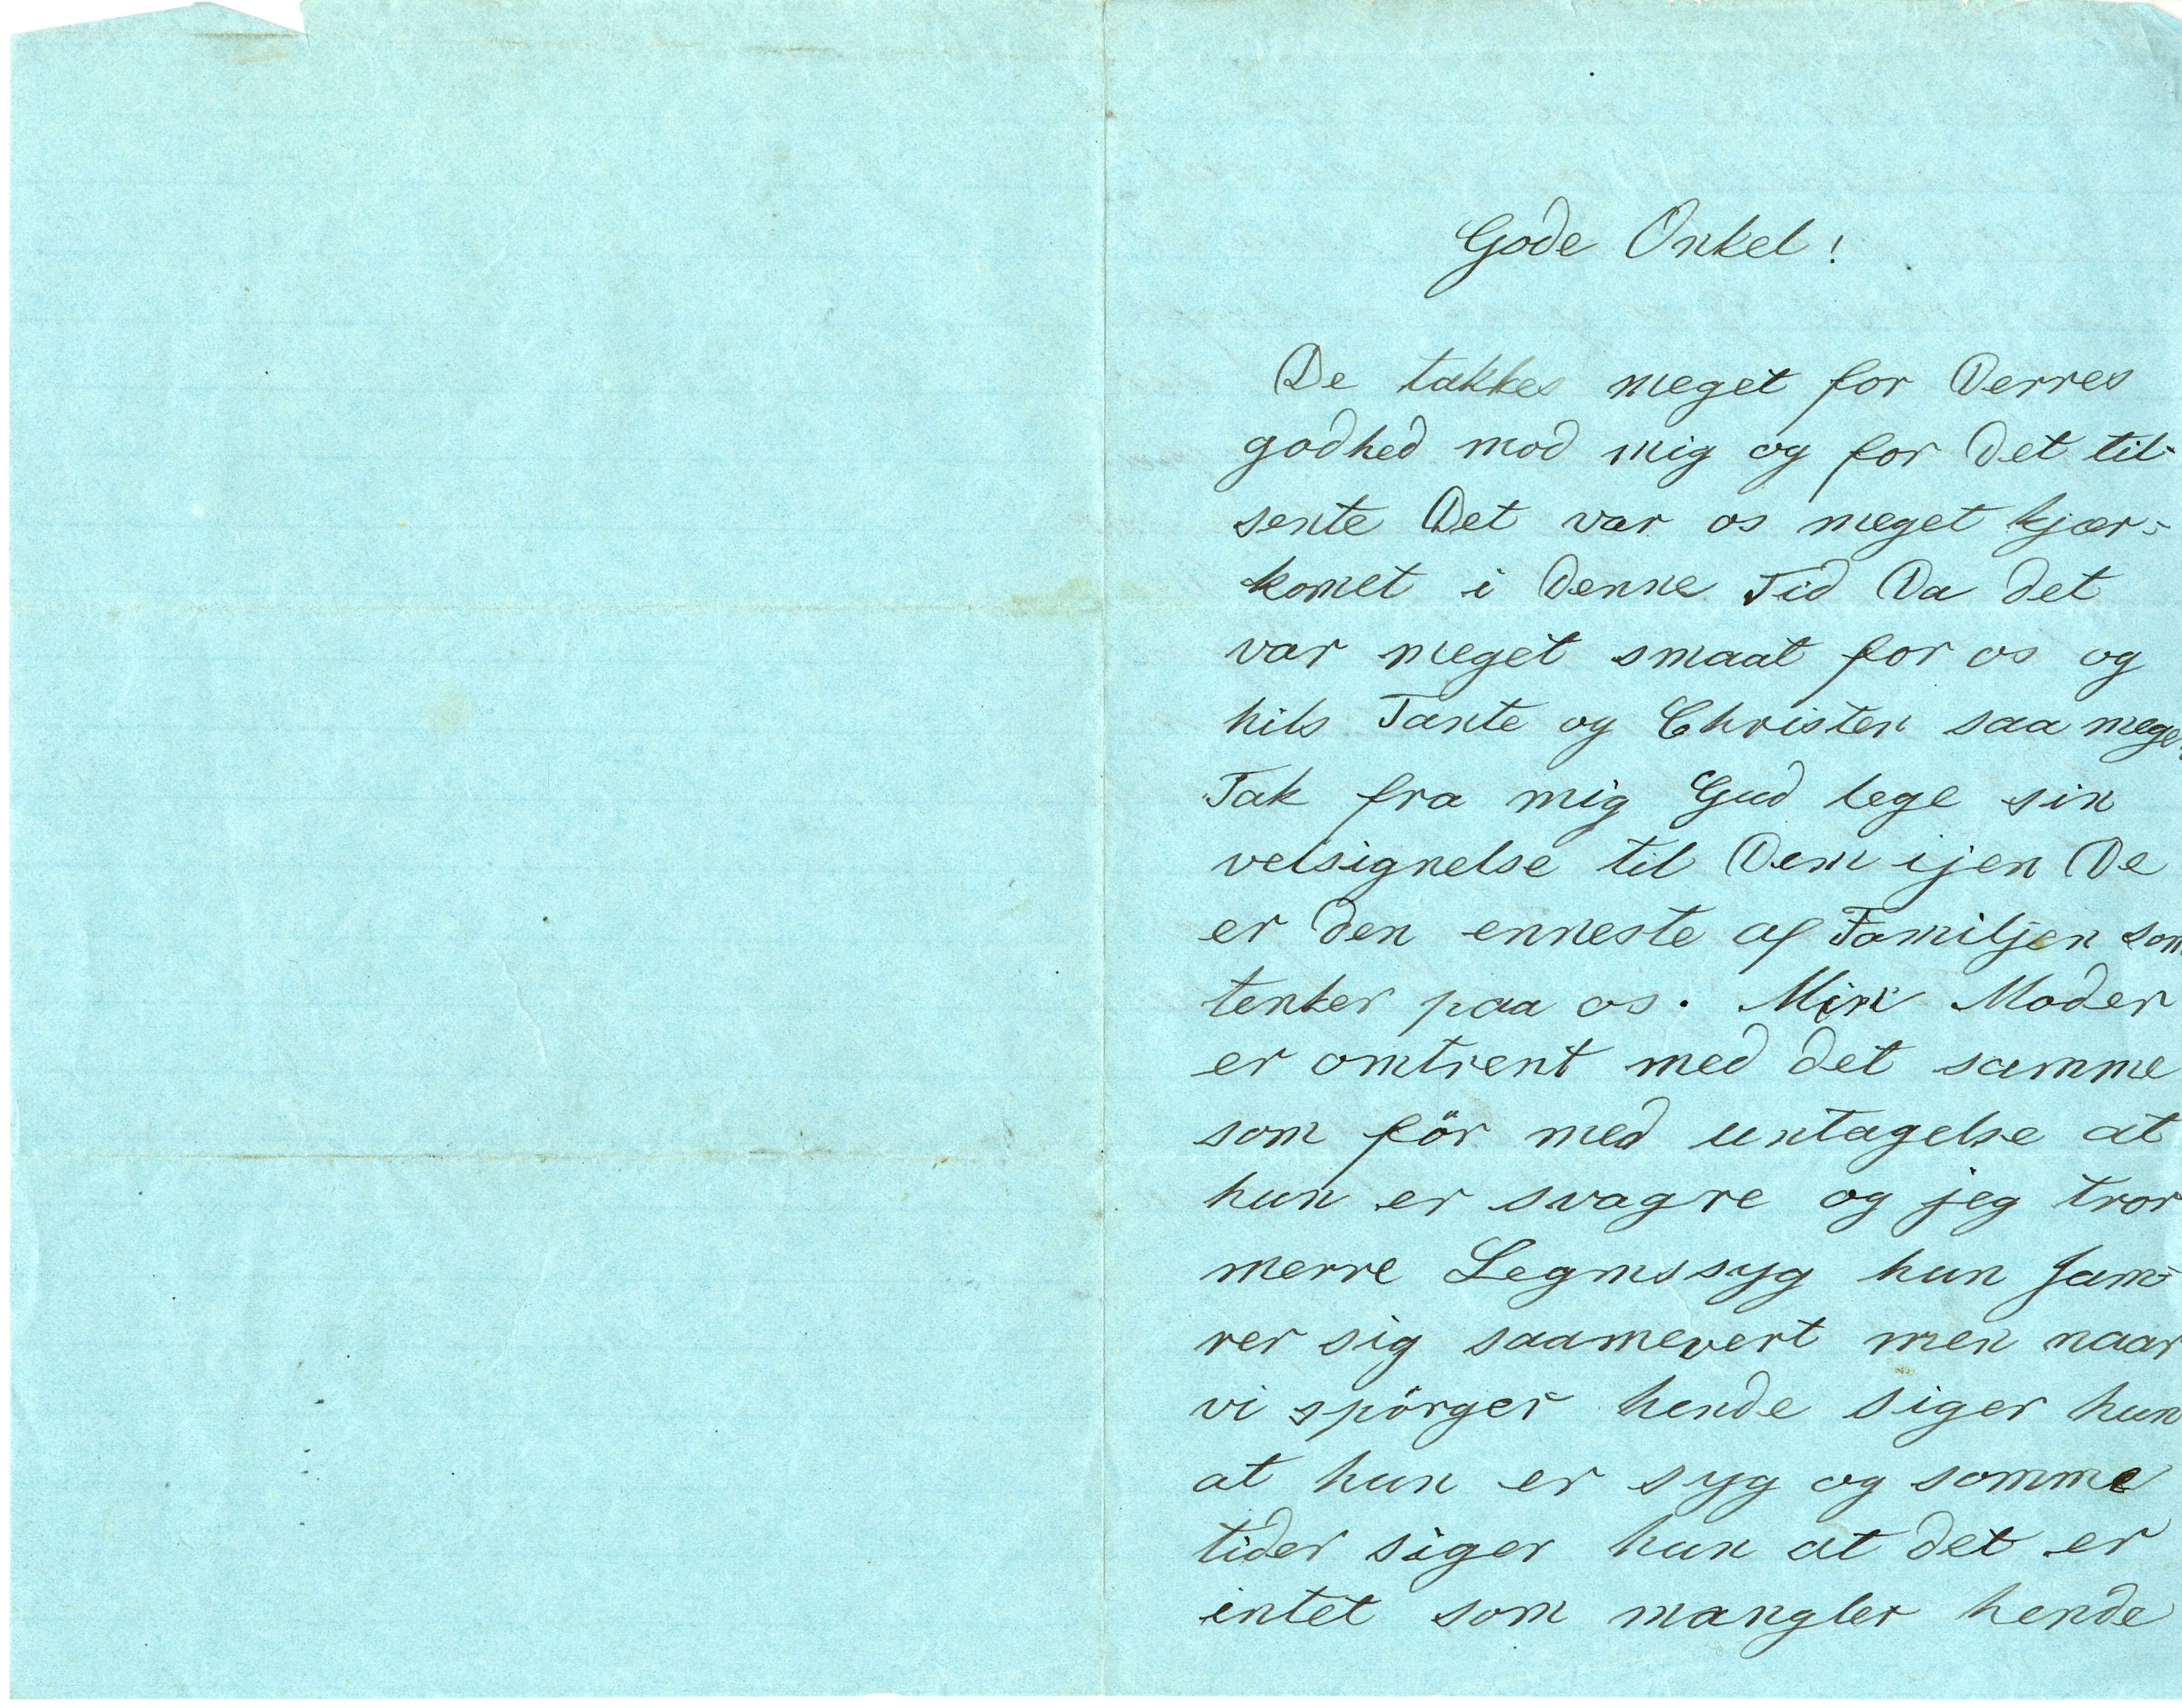 Gode Onkel!
De takkes meget for Derres
godhed mod mig og for det til-
sente Det var os meget kjær-
komet i denne Tid Da det
var meget smaat for os og
hils Tante og Christen saa meget
Tak fra mig Gud lege sin
velsignelse til Dem ijen De
er den enneste af Familjen som
tenker paa os. Min Moder
er omtrent med det samme
som för med untagelse at
hun er svagre og jeg tror
merre Legmssyg hun Jam-
rer sig saamevert men naar
vi spörger hende siger hun
at hun er syg og somme
tider siger hun at det er
intet som mangler hende